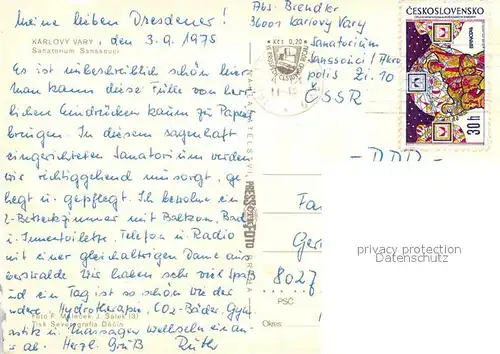 Meine lieben Dresdener!
KARLOVY VARY, den 3.9.1975
Sanatorium Sanssouci
Es ist unbeschreiblich schön hier,
man kann diese Fülle von herr-
lichen Eindrücken kaum zu Papier
bringen. In diesem sagenhaft
eingerichteten Sanatorium werden
wir richtiggehend umsorgt, ge-
hegt u. gepflegt. Ich bewohne ein
2-Bettzimmer mit Balkon, Bad
u. Innentoilette, Telefon u. Radio
mit einer gleichaltrigen Dame aus
Wir haben sehr viel Spaß
und ein Tag ist so schön wie der
andere. Hydrotherapie, CO2-Bäder, Gym-
Foto F. Maleček, J. Sálek (3)
nastik u. Massagen wechseln ein an-
Tisk Severografia Děčín
er ab. Herzl. Gruß Ruth
Abs. Brendler
36001 Karlovy Vary
Sanatorium
Sanssouci / Akro
polis Zi. 10
ČSSR
Kčs 0,20
ČESKOSLOVENSKO
30 h
- DDR -
PRESSFOTO
PRAHA
Fa
Ger
8027
PSČ
Okres:
privacy protection
Datenschutz